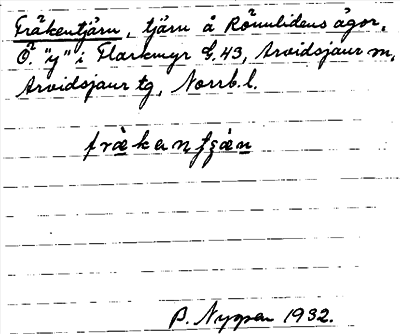 Fräkentjärn, tjärn å Rönnlidens ägor,
Ö. "y" i Flarkmyr G.43, Arvidsjaur sn,
Arvidsjaur tg, Norrb.l.
frækanʃæ̀n
B. Nyman 1932.